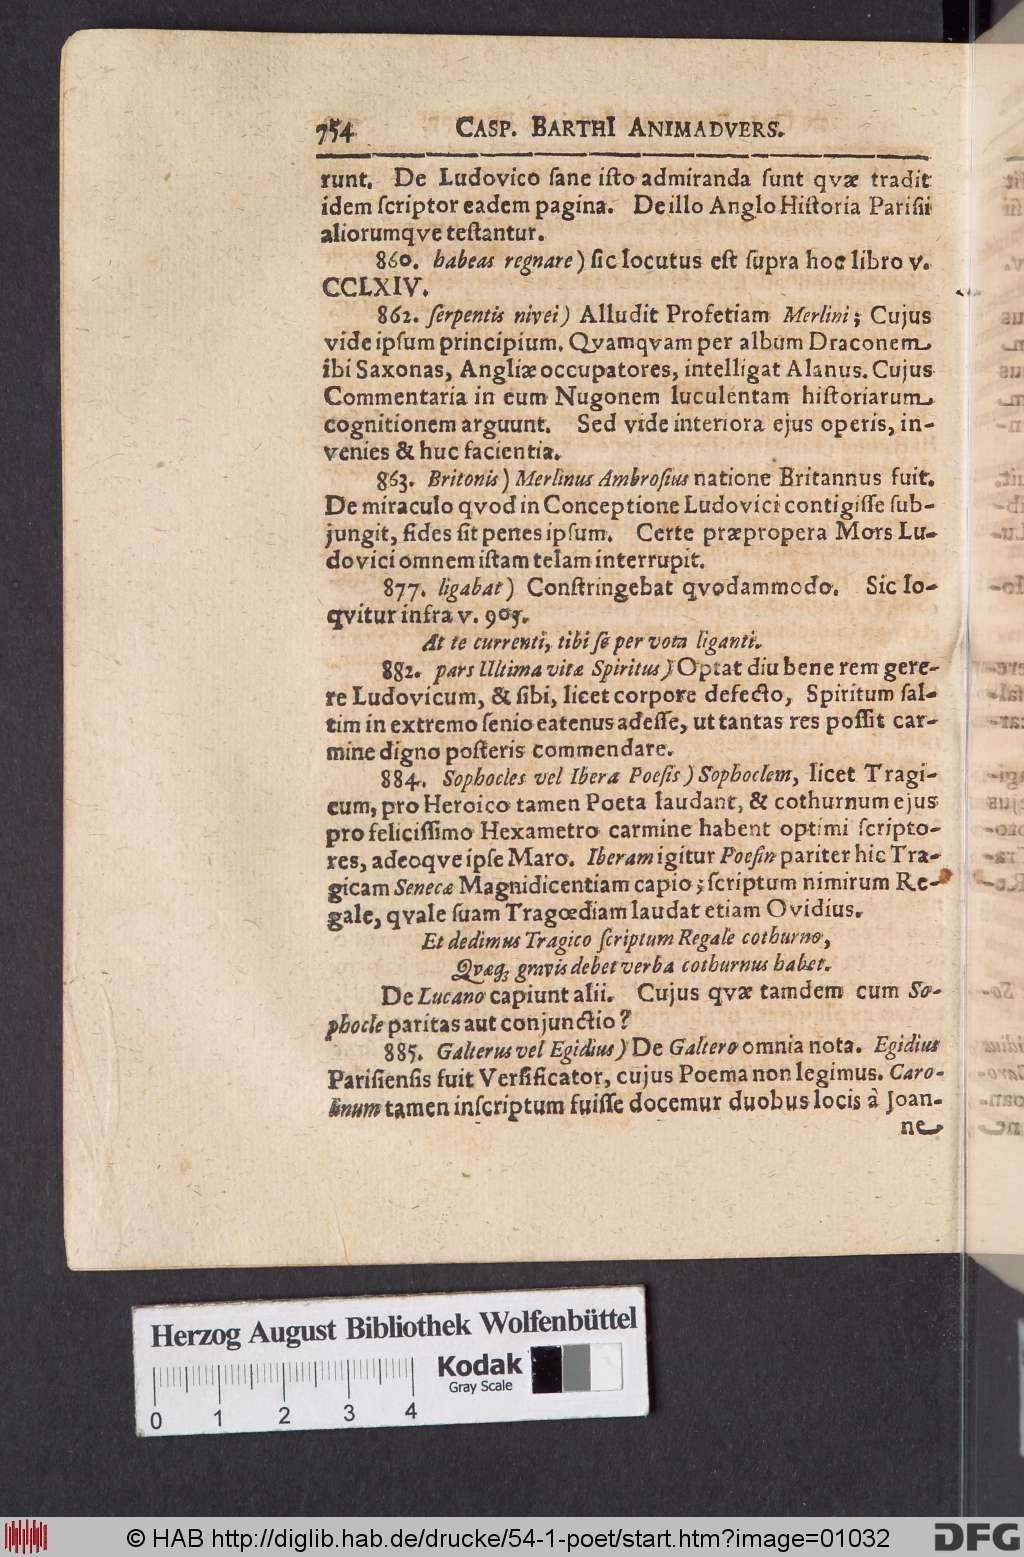 754 CASP. BARTHI ANIMADVERS.
runt. De Ludovico ſane iſto admiranda ſunt qvæ tradit
idem ſcriptor eadem pagina. De illo Anglo Hiſtoria Pariſii
aliorumqve teſtantur.
860. habeas regnare) ſic locutus eſt ſupra hoc libro v.
CCLXIV.
862. ſerpentis nivei) Alludit Profetiam Merlini; Cujus
vide ipſum principium. Qvamqvam per album Draconem
ibi Saxonas, Angliæ occupatores, intelligat Alanus. Cujus
Commentaria in eum Nugonem luculentam hiſtoriarum
cognitionem arguunt. Sed vide interiora ejus operis, in-
venies & huc facientia.
863. Britonis) Merlinus Ambroſius natione Britannus fuit.
De miraculo qvod in Conceptione Ludovici contigiſſe ſub-
jungit, fides ſit penes ipſum. Certe præpropera Mors Lu-
dovici omnem iſtam telam interrupit.
877. ligabat) Conſtringebat qvodammodo. Sic lo-
qvitur infra v. 905.
At te currenti, tibi ſe per vota liganti.
882. pars Ultima vitæ Spiritus) Optat diu bene rem gere-
re Ludovicum, & ſibi, licet corpore defecto, Spiritum ſal-
tim in extremo ſenio eatenus adeſſe, ut tantas res poſſit car-
mine digno poſteris commendare.
884. Sophocles vel Ibera Poeſis) Sophoclem, licet Tragi-
cum, pro Heroico tamen Poeta laudant, & cothurnum ejus
pro feliciſſimo Hexametro carmine habent optimi ſcripto-
res, adeoqve ipſe Maro. Iberam igitur Poeſin pariter hic Tra-
gicam Senecæ Magnidicentiam capio; ſcriptum nimirum Re-
gale, qvale ſuam Tragœdiam laudat etiam Ovidius.
Et dedimus Tragico ſcriptum Regale cothurno,
Qvæq; gravis debet verba cothurnus habet.
De Lucano capiunt alii. Cujus qvæ tamdem cum So-
phocle paritas aut conjunctio?
885. Galterus vel Egidius) De Galtero omnia nota. Egidius
Pariſienſis fuit Verſificator, cujus Poema non legimus. Caro-
linum tamen inſcriptum fuiſſe docemur duobus locis à Joan-
ne
Herzog August Bibliothek Wolfenbüttel
Kodak
Gray Scale
0 1 2 3 4
© HAB http://diglib.hab.de/drucke/54-1-poet/start.htm?image=01032
DFG